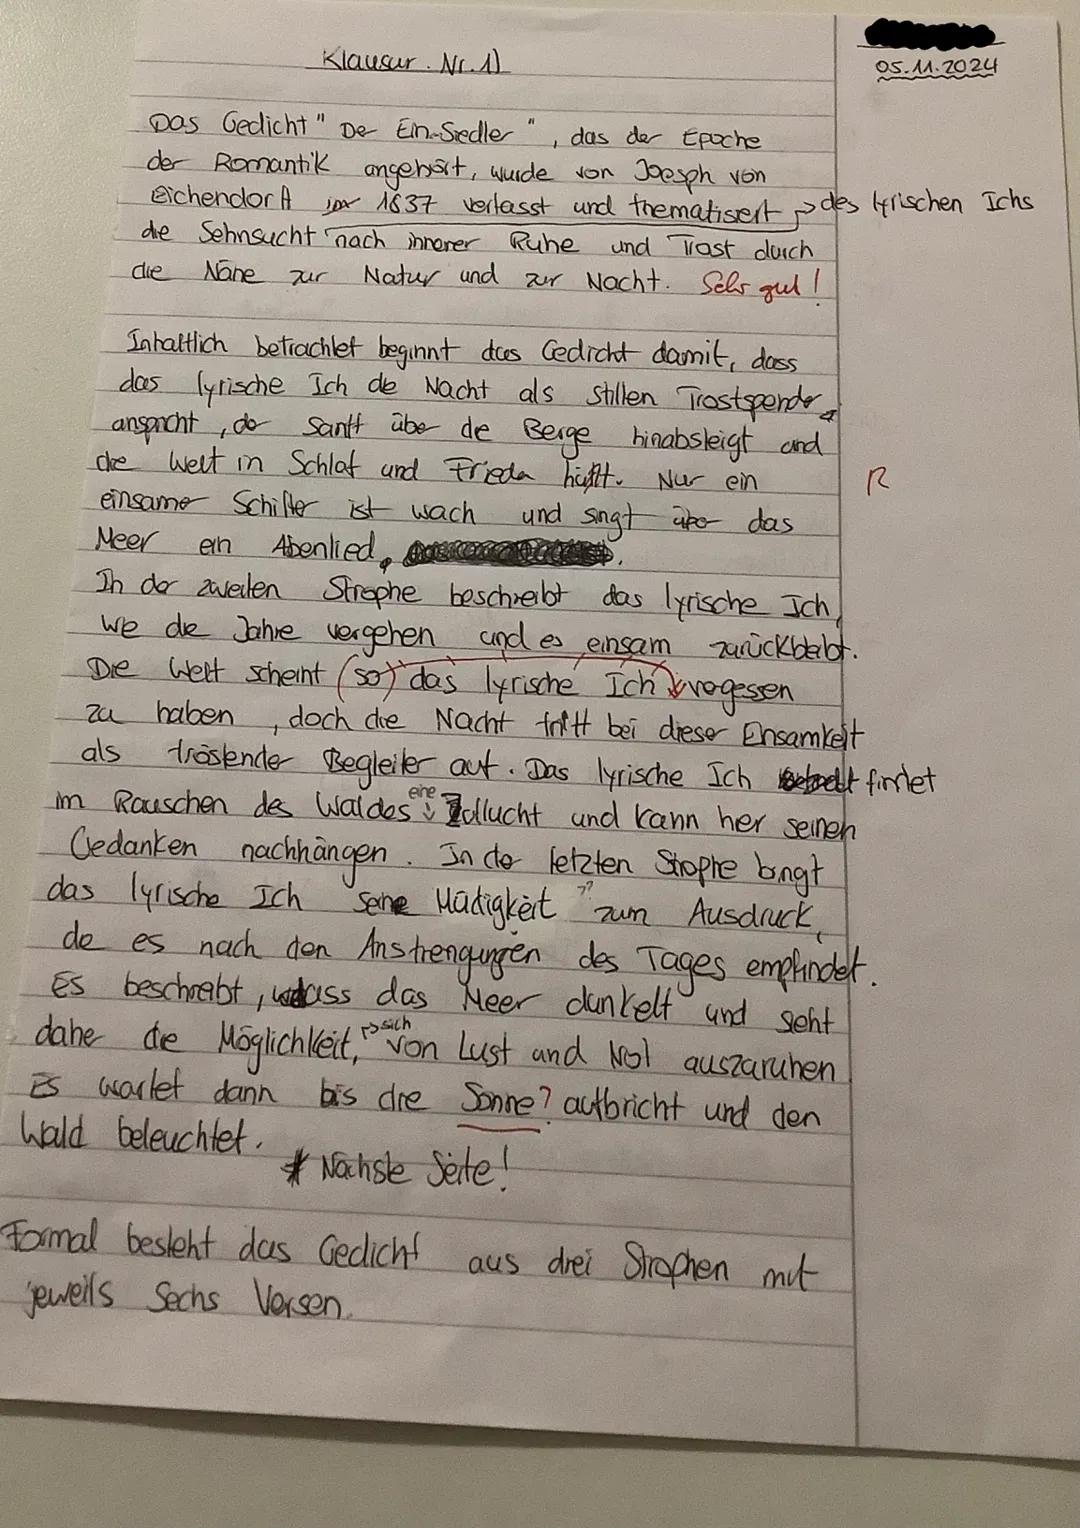 Klausur Nr. 1)
05.11.2024
Das Gedicht "Der Ein-Siedler", das der Epoche
der Romantik angehört, wurde von Joesph von
Eichendorff 1837 verfasst und thematisiert → des lyrischen Ichs
die Sehnsucht nach innerer Ruhe und Trost durch
die Nähe zur Natur und zur Nacht. Sehr gut!
Inhaltlich betrachtet beginnt das Gedicht damit, dass
das lyrische Ich die Nacht als stillen Trostspender
anspricht, der sanft über die Berge hinabsteigt und
die Welt in Schlaf und Frieden hüllt. Nur ein
R
einsamer Schiffer ist wach und singt über das
Meer ein Abenlied.
In der zweiten Strophe beschreibt das lyrische Ich,
wie die Jahre vergehen und es einsam zurückbleibt.
Die Welt scheint (so) das lyrische Ich vergessen
zu haben, doch die Nacht tritt bei dieser Einsamkeit
als tröstender Begleiter auf. Das lyrische Ich findet
im Rauschen des Waldes eine Zuflucht und kann hier seinen
Gedanken nachhängen. In der letzten Strophe bringt
das lyrische Ich seine Müdigkeit zum Ausdruck,
die es nach den Anstrengungen des Tages empfindet.
Es beschreibt, dass das Meer dunkelt und sieht
daher die Möglichkeit, sich von Lust und Not auszuruhen
Es wartet dann bis die Sonne? aufbricht und den
Wald beleuchtet.
* Nächste Seite!
Formal besteht das Gedicht aus drei Strophen mit
jeweils Sechs Versen.